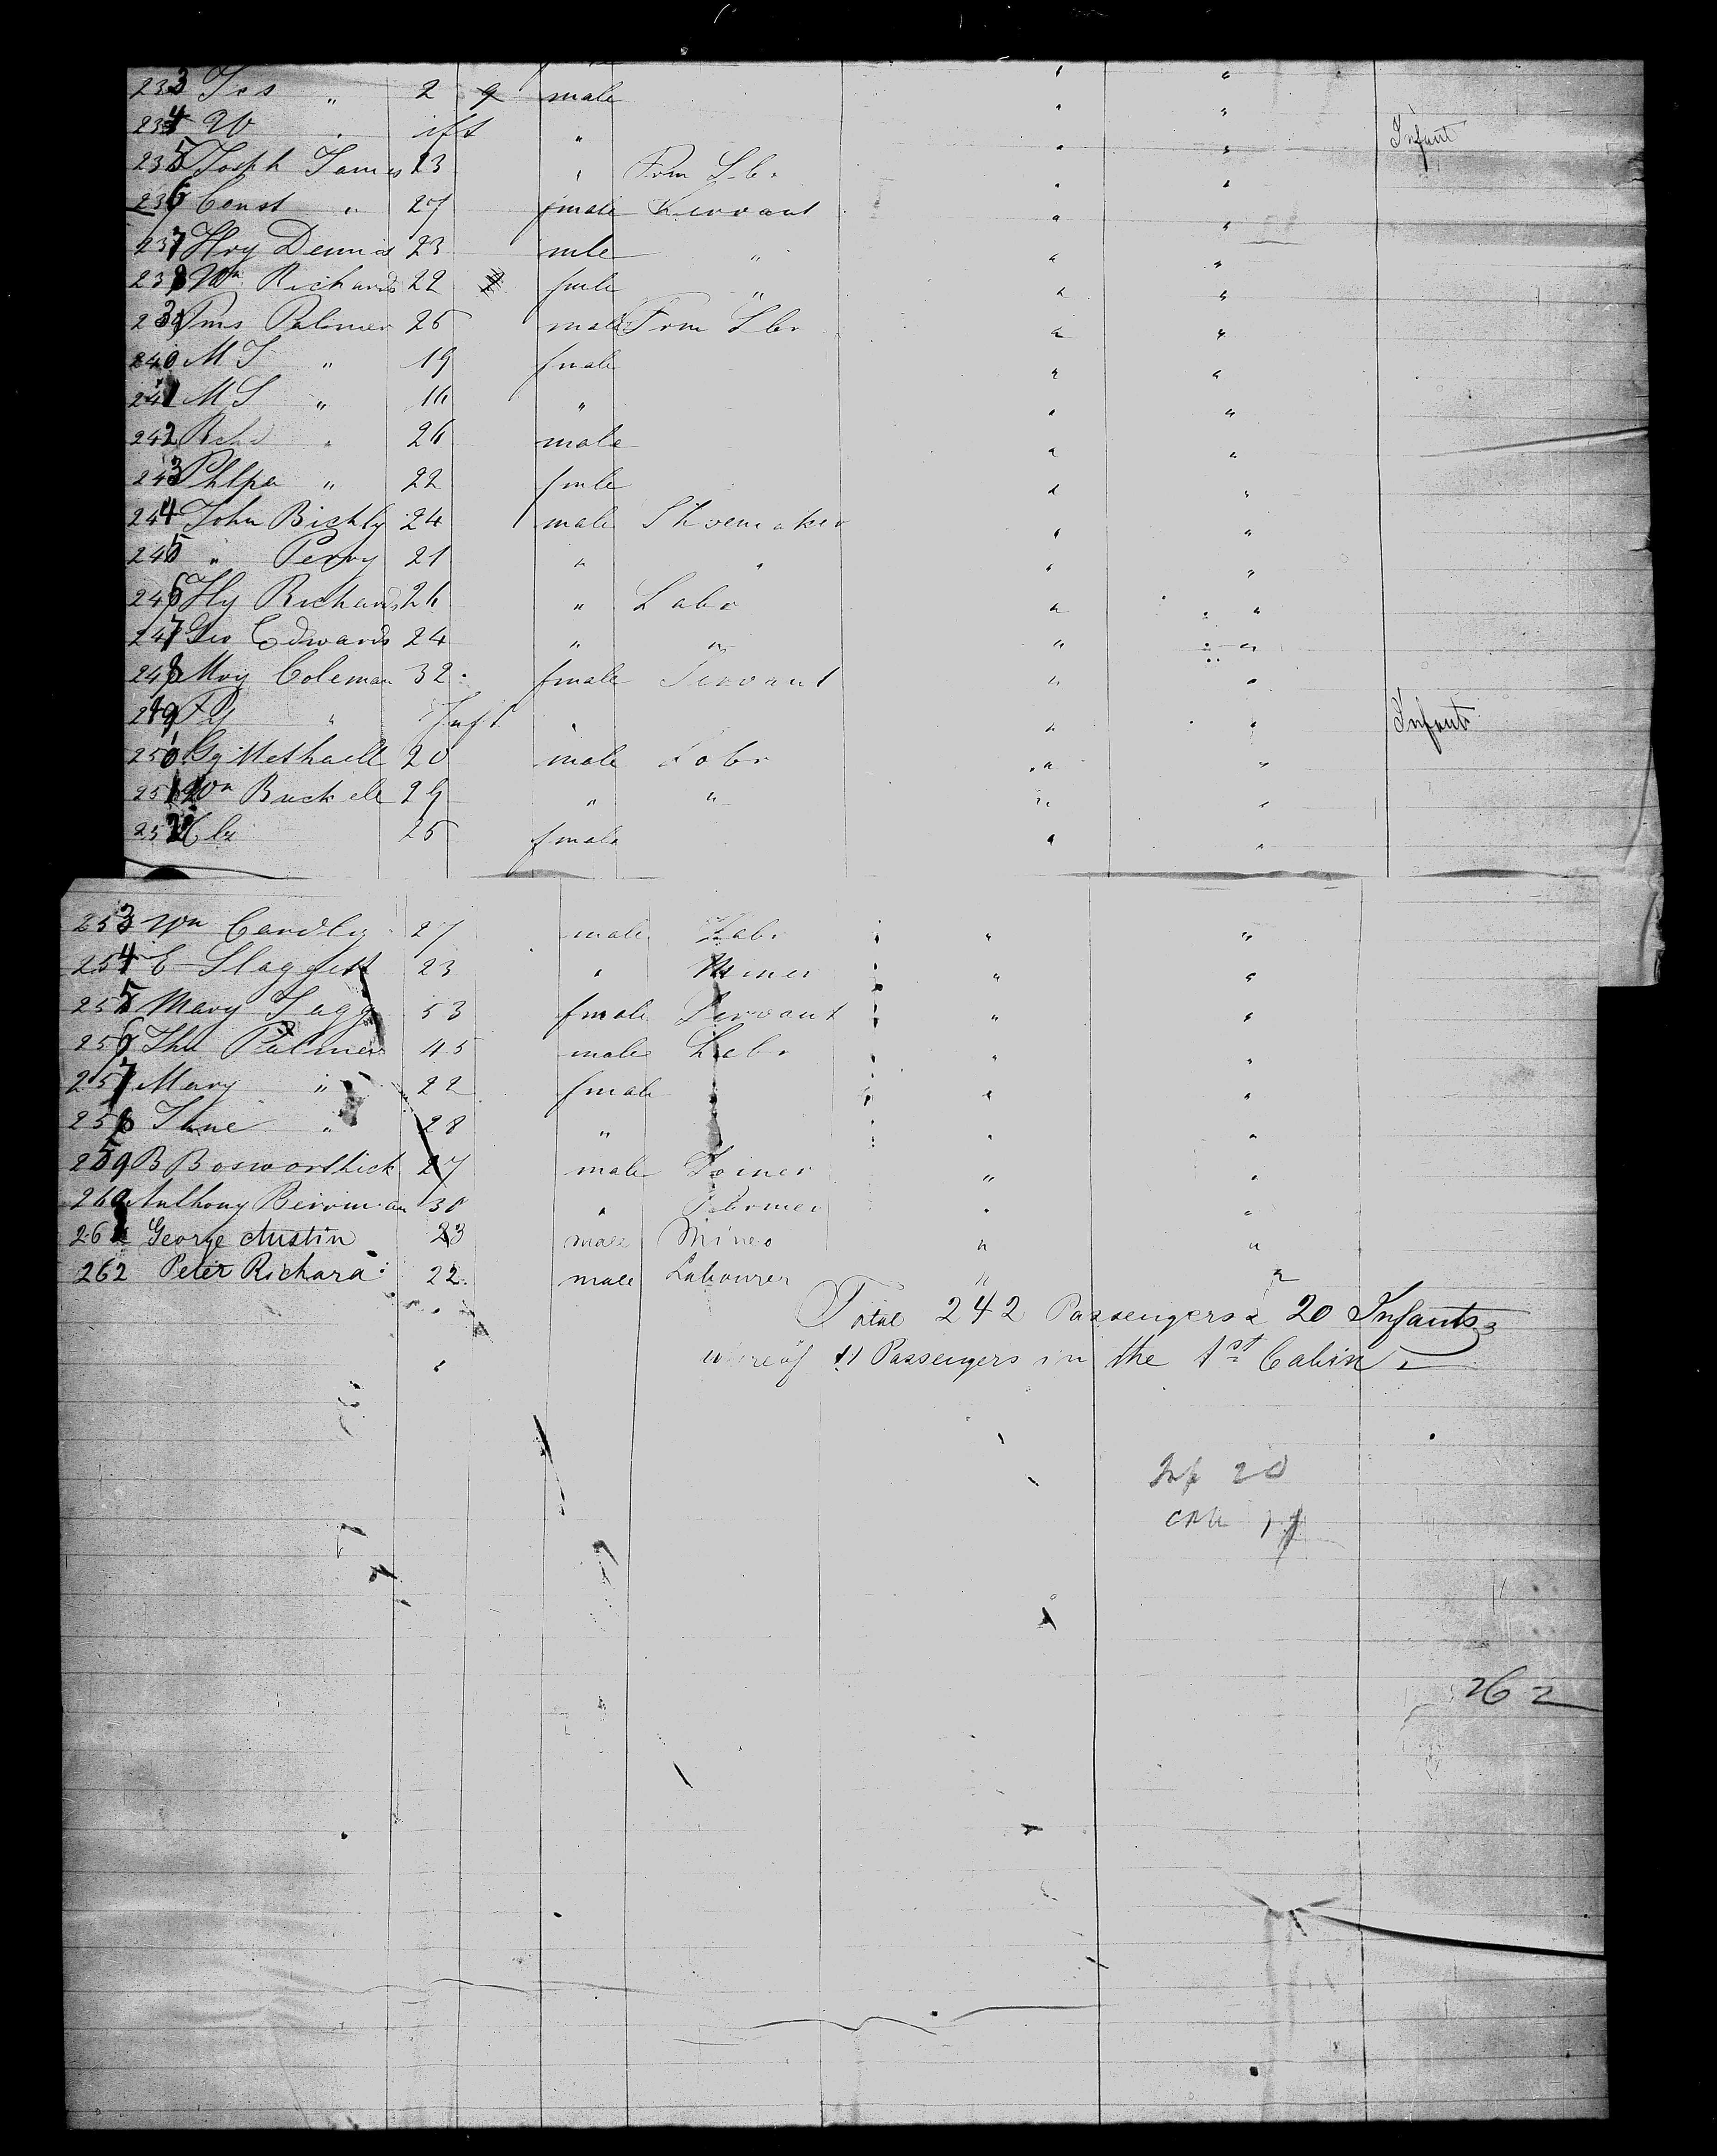 233 Jas " 2 9 male " "
234 W " ift " " " Infant
235 Joseph James 23 " Frm Lbr " "
236 Const " 27 fmale Servant " "
237 Hry Dennis 23 mle " " "
238 Wm Richards 22 fmle " " "
239 Jms Palmer 25 male Frm Lbr " "
240 M J " 19 fmale " "
241 M S " 16 " " "
242 Rchd " 26 male " "
243 Phlpa " 22 fmle " "
244 John Bickly 24 male Shoemaker " "
245 " Perry 21 " " " "
246 Hy Richards 26 " Labr " "
247 Geo Edwards 24 " " " "
248 Mry Coleman 32 fmale Servant " "
249 " Inft " " " Infant
250 Gg Methaell 20 male Labr " "
251 Wm Buckele 29 " " " "
252 Elz 25 fmale " "
253 Wm Cardly 27 male Labr " "
254 E Slaggett 23 " Miner " "
255 Mary Jagg 53 fmale Servant " "
256 Jhn Palmer 45 male Labr " "
257 Mary " 22 fmale " "
258 Jane " 28 " " "
259 B Bosworthick 27 male Joiner " "
260 Anthony Berriman 30 " Farmer " "
261 George Austin 23 male Miner " "
262 Peter Richard 22 male Labourer " "
Total 242 Passengers & 20 Infants
whereof 11 Passengers in the 1st Cabin
Inf 20
262